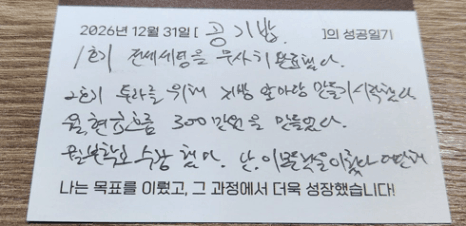 2026년 12월 31일 [ 공기밥. ]의 성공일기
1호기 전세세팅을 무사히 완료했다.
2호기 투자를 위해 지방 앞마당 만들기 시작했다
월 현금흐름 300만원을 만들었다.
월부학교 수강 했다. 난, 이 모든 것을 이뤘다
나는 목표를 이뤘고, 그 과정에서 더욱 성장했습니다!